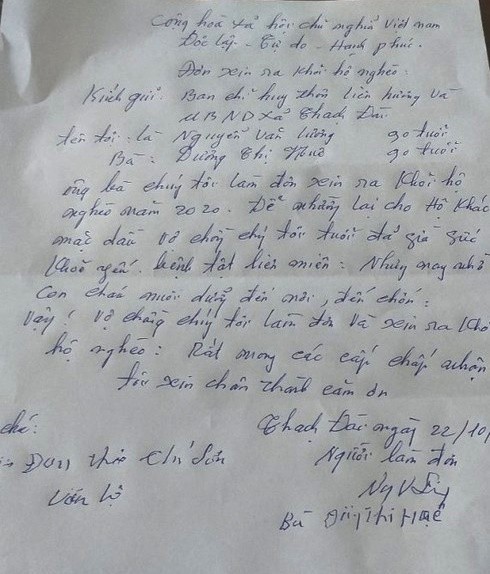 Cộng hoà xã hội chủ nghĩa Việt nam
Độc lập - Tự do - Hạnh phúc.
Đơn xin ra khỏi hộ nghèo:
Kính gửi: Ban chỉ huy thôn liên hương và
UBND xã Thạch Đài
tên tôi: là Nguyễn Văn Lương 90 tuổi
Bà: Dương Thị Huệ 90 tuổi
ông bà chúng tôi làm đơn xin ra khỏi hộ
nghèo năm 2020. Để nhường lại cho Hộ khác
mặc dầu vợ chồng chúng tôi tuổi đã già sức
khoẻ yếu. bệnh tật liên miên: Nhưng may nhờ
Con cháu nuôi dưỡng đến nơi, đến chốn:
Vậy! Vợ chồng chúng tôi làm đơn và xin ra khỏ
hộ nghèo: Rất mong các cấp chấp nhận
tôi xin chân thành cảm ơn
chú: Thạch Đài ngày 22/10
Đơn Người làm đơn
Bà Thị Huệ